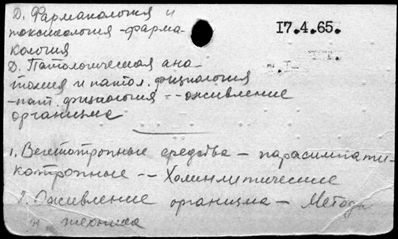 Д. Фармакология и
токсикология - фарма-
кология
17.4.65.
Д. Патологическая ана-
томия и патол. физиология
- пат. физиология -- оживление
организма
1. Вегетотропные средства - парасимпати-
котропные -- Холинлитические
2. Оживление организма - Методы
и техника